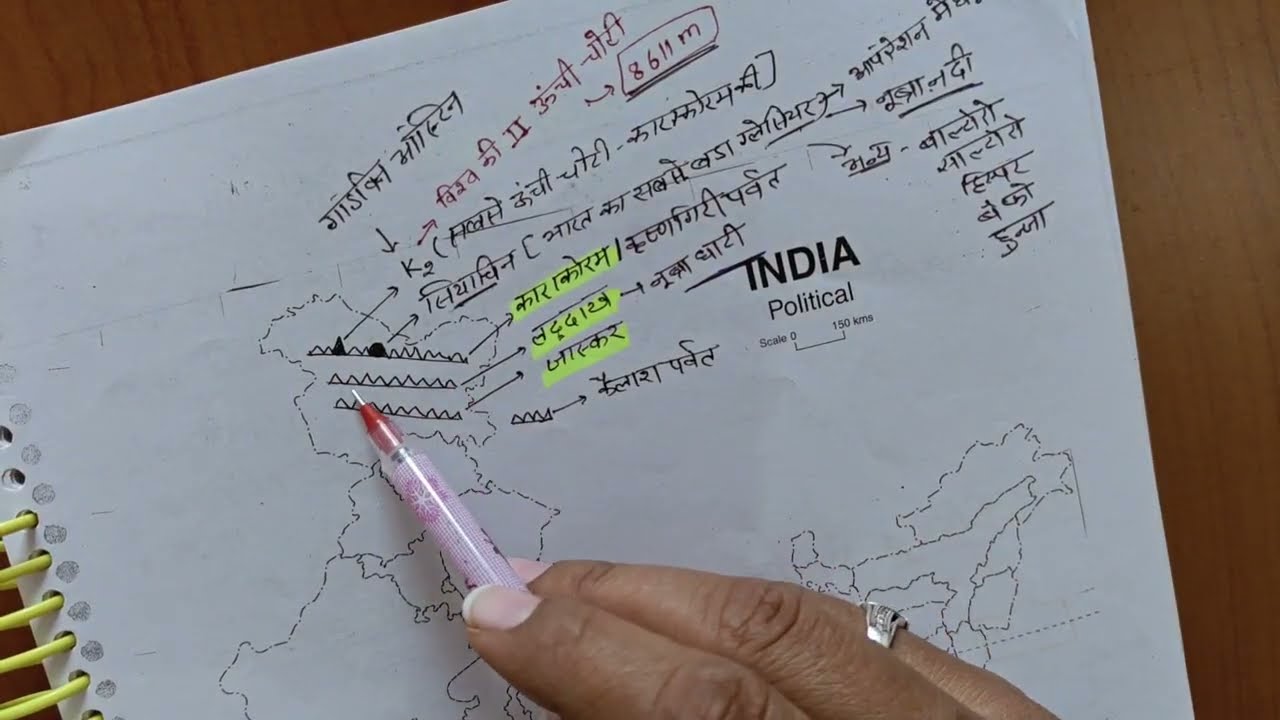 गाडविन ऑस्टिन
विश्व की II ऊंची चोटी
8611 m
K2 (सबसे ऊंची चोटी - काराकोरम की]
सियाचिन [भारत का सबसे बडा ग्लेशियर) → ऑपरेशन
नूब्रा नदी
अन्य - बाल्टोरो
साल्टोरो
हिस्पर
बेफो
हुन्जा
काराकोरम / कृष्णगिरी पर्वत
लद्दाख → नूब्रा घाटी
जास्कर
कैलाश पर्वत
INDIA
Political
Scale 0 150 kms